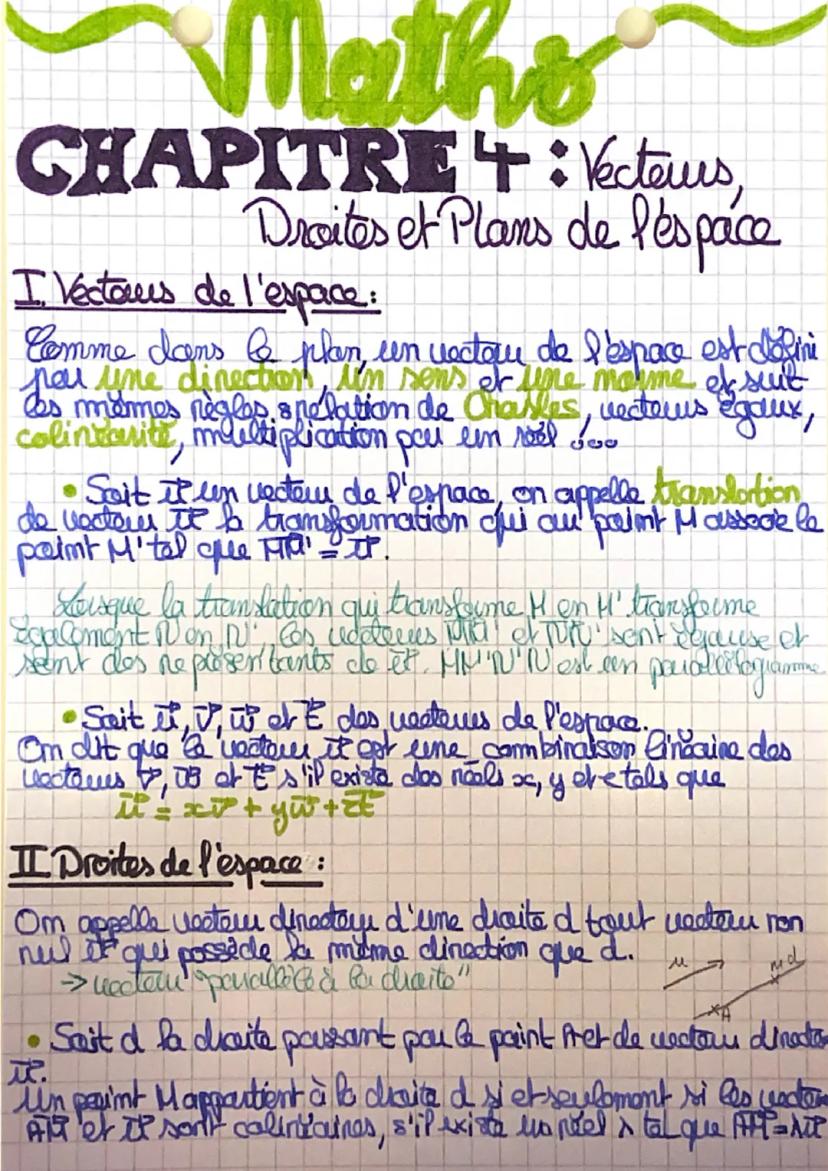 Maths
CHAPITRE 4 : Vecteurs,
Droites et Plans de l'éspace
I. Vecteurs de l'espace :
Comme dans le plan, un vecteur de l'espace est défini
par une direction, un sens et une norme et suit
les mêmes règles, relation de Chasles, vecteurs égaux,
colinéarité, multiplication par un réel ...
• Soit u⃗ un vecteur de l'espace, on appelle translation
de vecteur u⃗ la transformation qui au point M associe le
point M' tel que MM'⃗ = u⃗.
Lorsque la translation qui transforme M en M' transforme
également N en N'. Les vecteurs MM'⃗ et NN'⃗ sont égause et
sont des représentants de u⃗. MM'N'N est un parallélogramme
• Soit u⃗, v⃗, w⃗ et t⃗ des vecteurs de l'espace.
On dit que le vecteur u⃗ est une combinaison linéaire des
vecteurs v⃗, w⃗ et t⃗ s'il existe des réels x, y et z tels que
u⃗ = xv⃗ + yw⃗ + zt⃗
II Droites de l'espace :
On appelle vecteur directeur d'une droite d tout vecteur non
nul u⃗ qui possède la même direction que d.
→ vecteur "parallèle à la droite"
u
M d
A
• Soit d la droite passant par le point A et de vecteur directeu
u⃗.
Un point M appartient à la droite d si et seulement si les vecteu
AM⃗ et u⃗ sont colinéaires, s'il existe un réel λ tel que AM⃗ = λu⃗